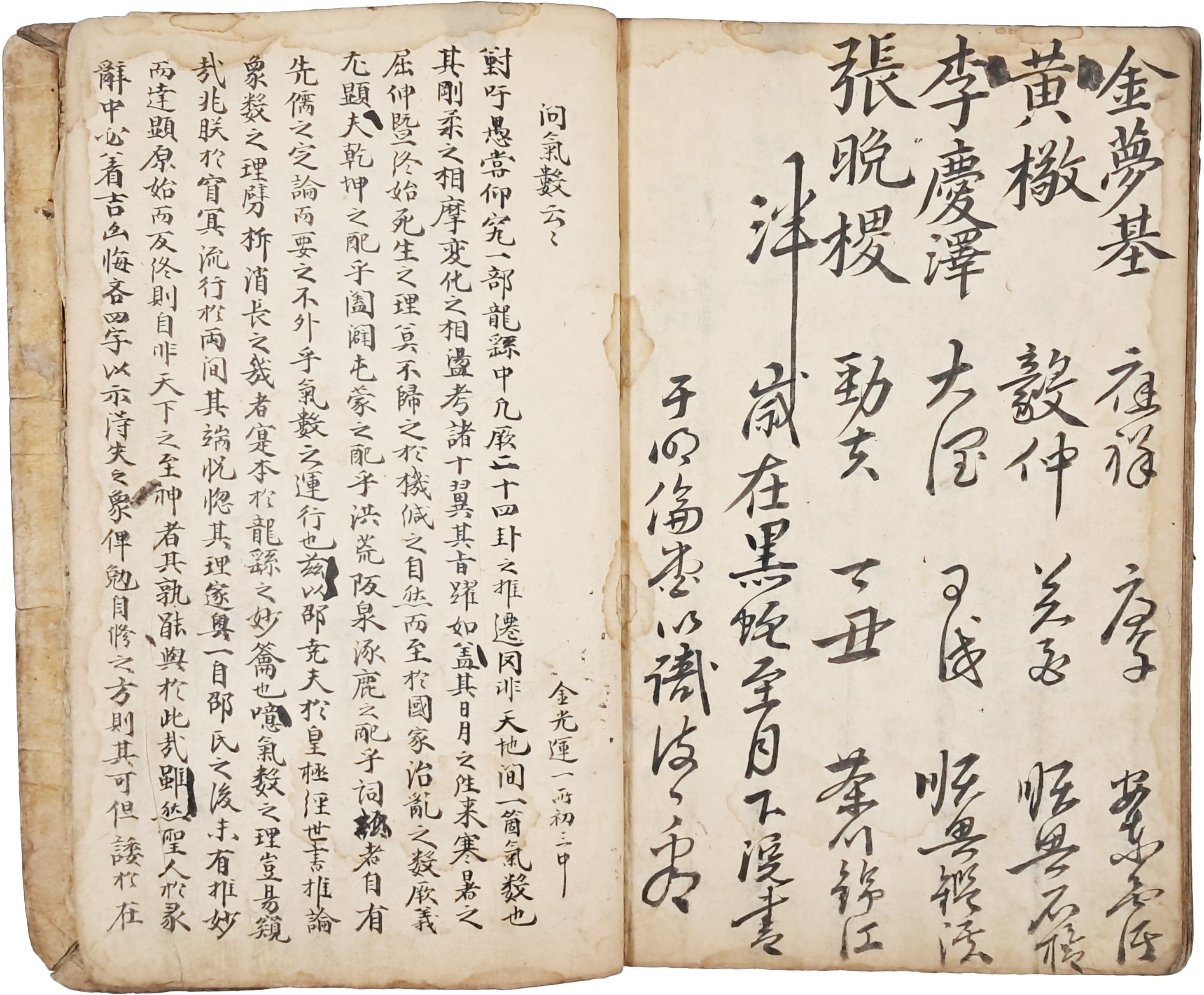 金夢基 應祥 庚子 安東
黃橵 毅仲 癸 順興石橋
李慶澤 大 甲戌 順興鑑溪
張晩稷 勁夫 丁丑 茶川錦江
泮
歲在黑蛇至月下浣書
于明倫堂以識後
问氣數云々
金光運一所初三中
對吁愚嘗仰究一部龍繇中凡厥二十四卦之推遷罔非天地间一箇氣数也
其剛柔之相摩变化之相盪考諸十翼其旨躍如盖其日月之徃来寒暑之
屈伸曁终始死生之理莫不歸之於機缄之自然而至於國家治亂之数厥義
尤顯夫乾坤之配乎阖闢屯蒙之配乎洪荒阪泉涿鹿之配乎詞者自有
先儒之定論而要之不外乎氣数之運行也兹以邵尭夫於皇極經世書推論
象数之理劈柝消長之幾者寔本於龍繇之妙籥也噫氣数之理豈易窺
㢤兆朕於窅冥流行於两间其端恍惚其理邃奥一自邵氏之後未有推妙
而達顯原始而反终則自非天下之至神者其孰能與於此㢤雖然聖人於彖
辭中必着吉凶悔吝四字以示淂失之象俾勉自修之方則其可但諉於在